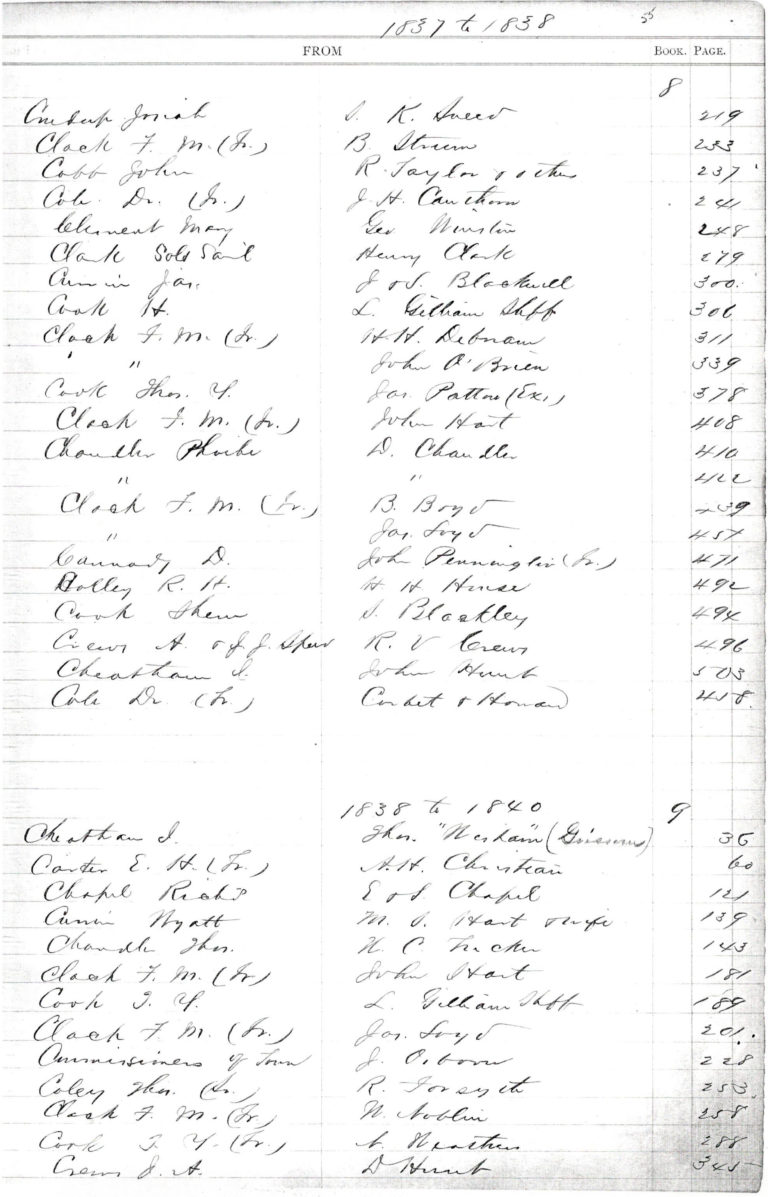 1837 to 1838
FROM Book. Page.
8
Josiah S. K. Sneed 219
Clack F. M. (Tr.) B. Strum 233
Cobb John R. Taylor & others 237
Cole Dr. (Tr.) J. H. Cawthorn 241
Clement Mary Geo Winston 248
Clark Sol Henry Clark 279
Jas. J & S. Blackwell 300
Cook H. L. Gilliam Shff 306
Clack F. M. (Tr.) H. H. Debnam 311
" " John O'Brien 339
Cook Thos. Y. Jas. Patton (Ex.) 378
Clack F. M. (Tr.) John Hart 408
Chandler Phoebe D. Chandler 410
" " 422
Clack F. M. (Tr.) B. Boyd 439
" Jas. Loyd 457
Cannady D. John Pennington (Tr.) 471
R. H. H H House 492
Cook Shem S. Blackley 494
Crews A. & J. J. Speed R. V Crews 496
Cheatham I. John Hunt 503
Cole Dr. (Tr.) Corbet & Howard 418
1838 to 1840 9
Cheatham I. Thos. (Grissom) 36
Carter E. H. (Tr.) A. H. Christian 60
Chapel Richd E & S. Chapel 121
Wyatt M. S. Hart & wife 139
Chandler Thos. W. C Tucker 143
Clack F. M. (Tr) John Hart 181
Cook T. Y. L. Gilliam Shff 189
Clack F. M. (Tr.) Jas. Loyd 201.
Commissioners of Town J. Osborn 228
Coley Thos. (Sr.) R. Forsyth 253
Clack F. M. (Tr) W. Noblin 258
Cook T. Y. (Tr.) 288
Crews J. A. D Hunt 345